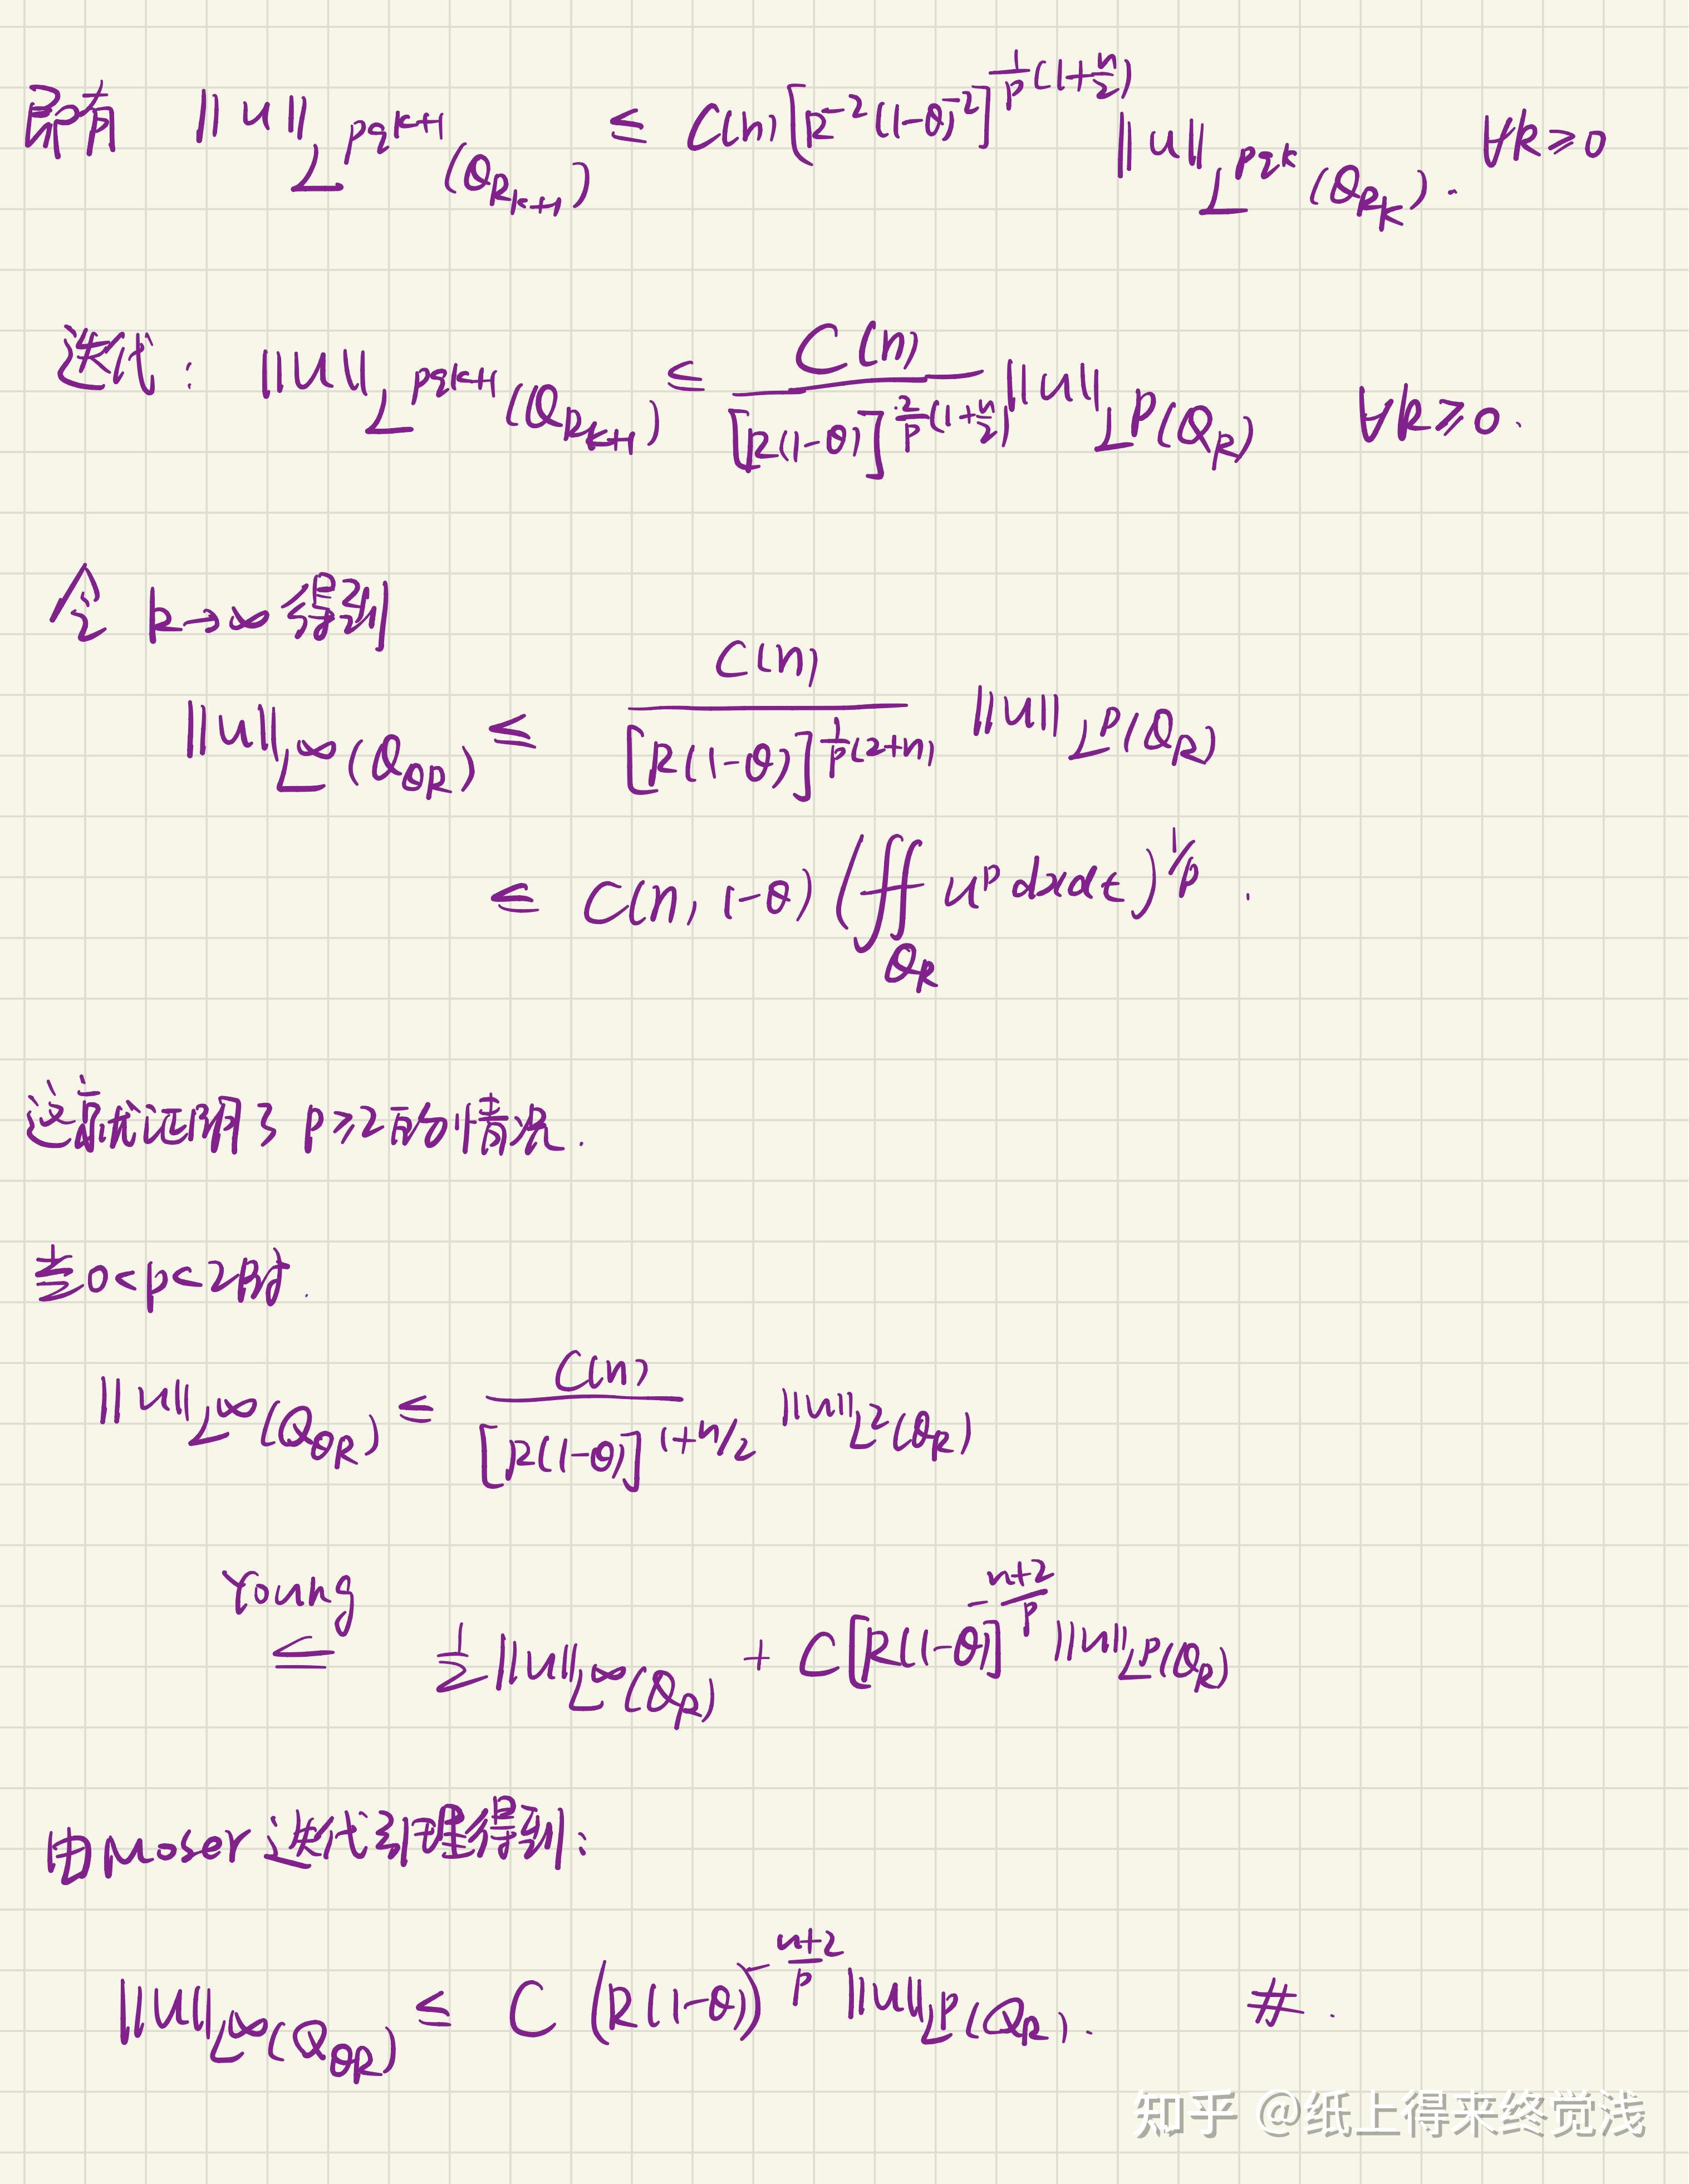 即有 ||u||_{L^{pq^{k+1}}(Q_{R_{k+1}})} ≤ C(n)[R^{-2}(1-θ)^{-2}]^{\frac{1}{p}(1+\frac{n}{2})} ||u||_{L^{pq^k}(Q_{R_k})}. ∀k≥0
迭代: ||u||_{L^{pq^{k+1}}(Q_{R_{k+1}})} ≤ \frac{C(n)}{[R(1-θ)]^{\frac{2}{p}(1+\frac{n}{2})}} ||u||_{L^p(Q_R)} ∀k≥0.
令 k→∞ 得到
||u||_{L^∞(Q_{θR})} ≤ \frac{C(n)}{[R(1-θ)]^{\frac{1}{p}(2+n)}} ||u||_{L^p(Q_R)}
≤ C(n, 1-θ) (⨎_{Q_R} u^p dxdt)^{1/p}.
这就证明了 p≥2 的情况.
当 0<p<2 时.
||u||_{L^∞(Q_{θR})} ≤ \frac{C(n)}{[R(1-θ)]^{1+n/2}} ||u||_{L^2(Q_R)}
Young
≤ \frac{1}{2}||u||_{L^∞(Q_R)} + C[R(1-θ)]^{-\frac{n+2}{p}} ||u||_{L^p(Q_R)}
由 Moser 迭代引理得到:
||u||_{L^∞(Q_{θR})} ≤ C (R(1-θ))^{-\frac{n+2}{p}} ||u||_{L^p(Q_R)}. #.
知乎 @纸上得来终觉浅